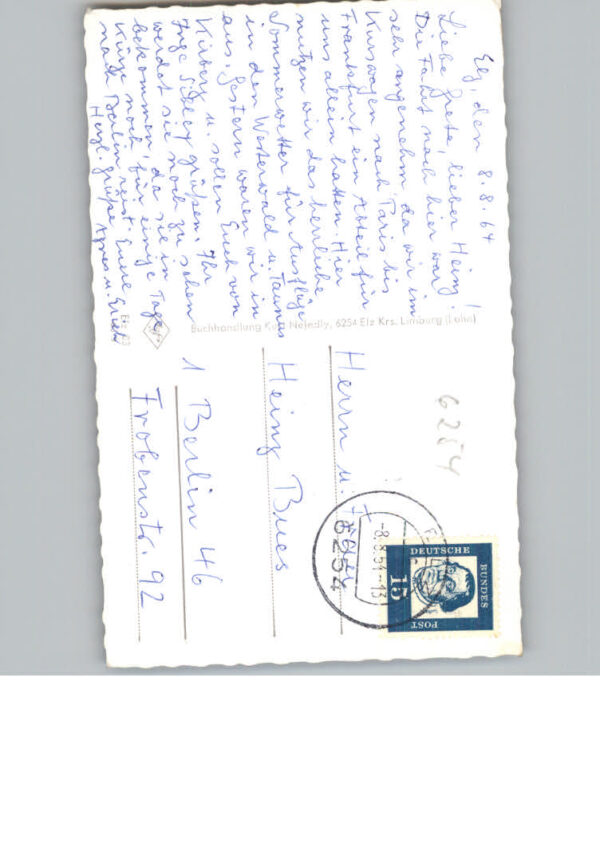 Elz, den 8.8.64
Liebe Grete, lieber Heinz!
Die Fahrt nach hier war
sehr angenehm da wir im
Kurswagen nach Paris bis
Frankfurt ein Abteil für
uns allein hatten. Hier
nutzen wir das herrliche
Sommerwetter für Ausflüge
in den Westerwald u. Taunus
aus. Gestern waren wir in
Kirberg u. sollen Euch von
Inge grüßen. Ihr
werdet sie noch zu sehen
bekommen, da sie in
Kürze noch für einige Tage
nach Berlin reist. Eure
Herzl. Grüße Agnes u. Erich
Elz
Buchhandlung Nejedly, 6254 Elz Krs. Limburg (Lahn)
6254
DEUTSCHE
BUNDES
POST
15
-8.8.64-13
6254
Herrn u. Frau
Heinz Bues
1 Berlin 46
Frobenstr. 92